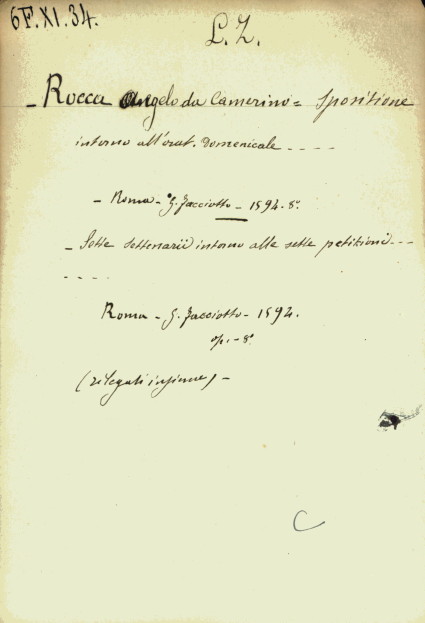 6F.XI.34.
L.Z.
- Rocca Angelo da Camerino = Spositione
intorno all'orat. Domenicale - - - -
- Roma - G. Facciotto - 1594 - 8°.
- Sette settenarii intorno alle sette petitioni - - -
- - - -
Roma - G. Facciotto - 1594.
op. - 8°
(rilegati insieme) -
C